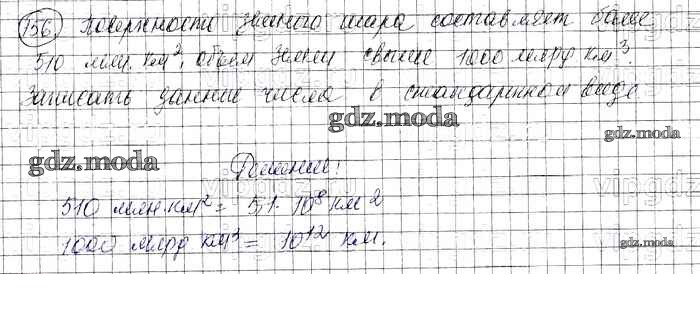 156 Поверхности земного шара составляет более
510 млн. км², объем Земли свыше 1000 млрд км³.
Записать данные числа в стандартном виде
gdz.moda
gdz.moda
gdz.moda
Решение:
vipgdz
510 млн. км² = 5,1 · 10⁸ км 2
1000 млрд км³ = 10¹² км.
gdz.moda